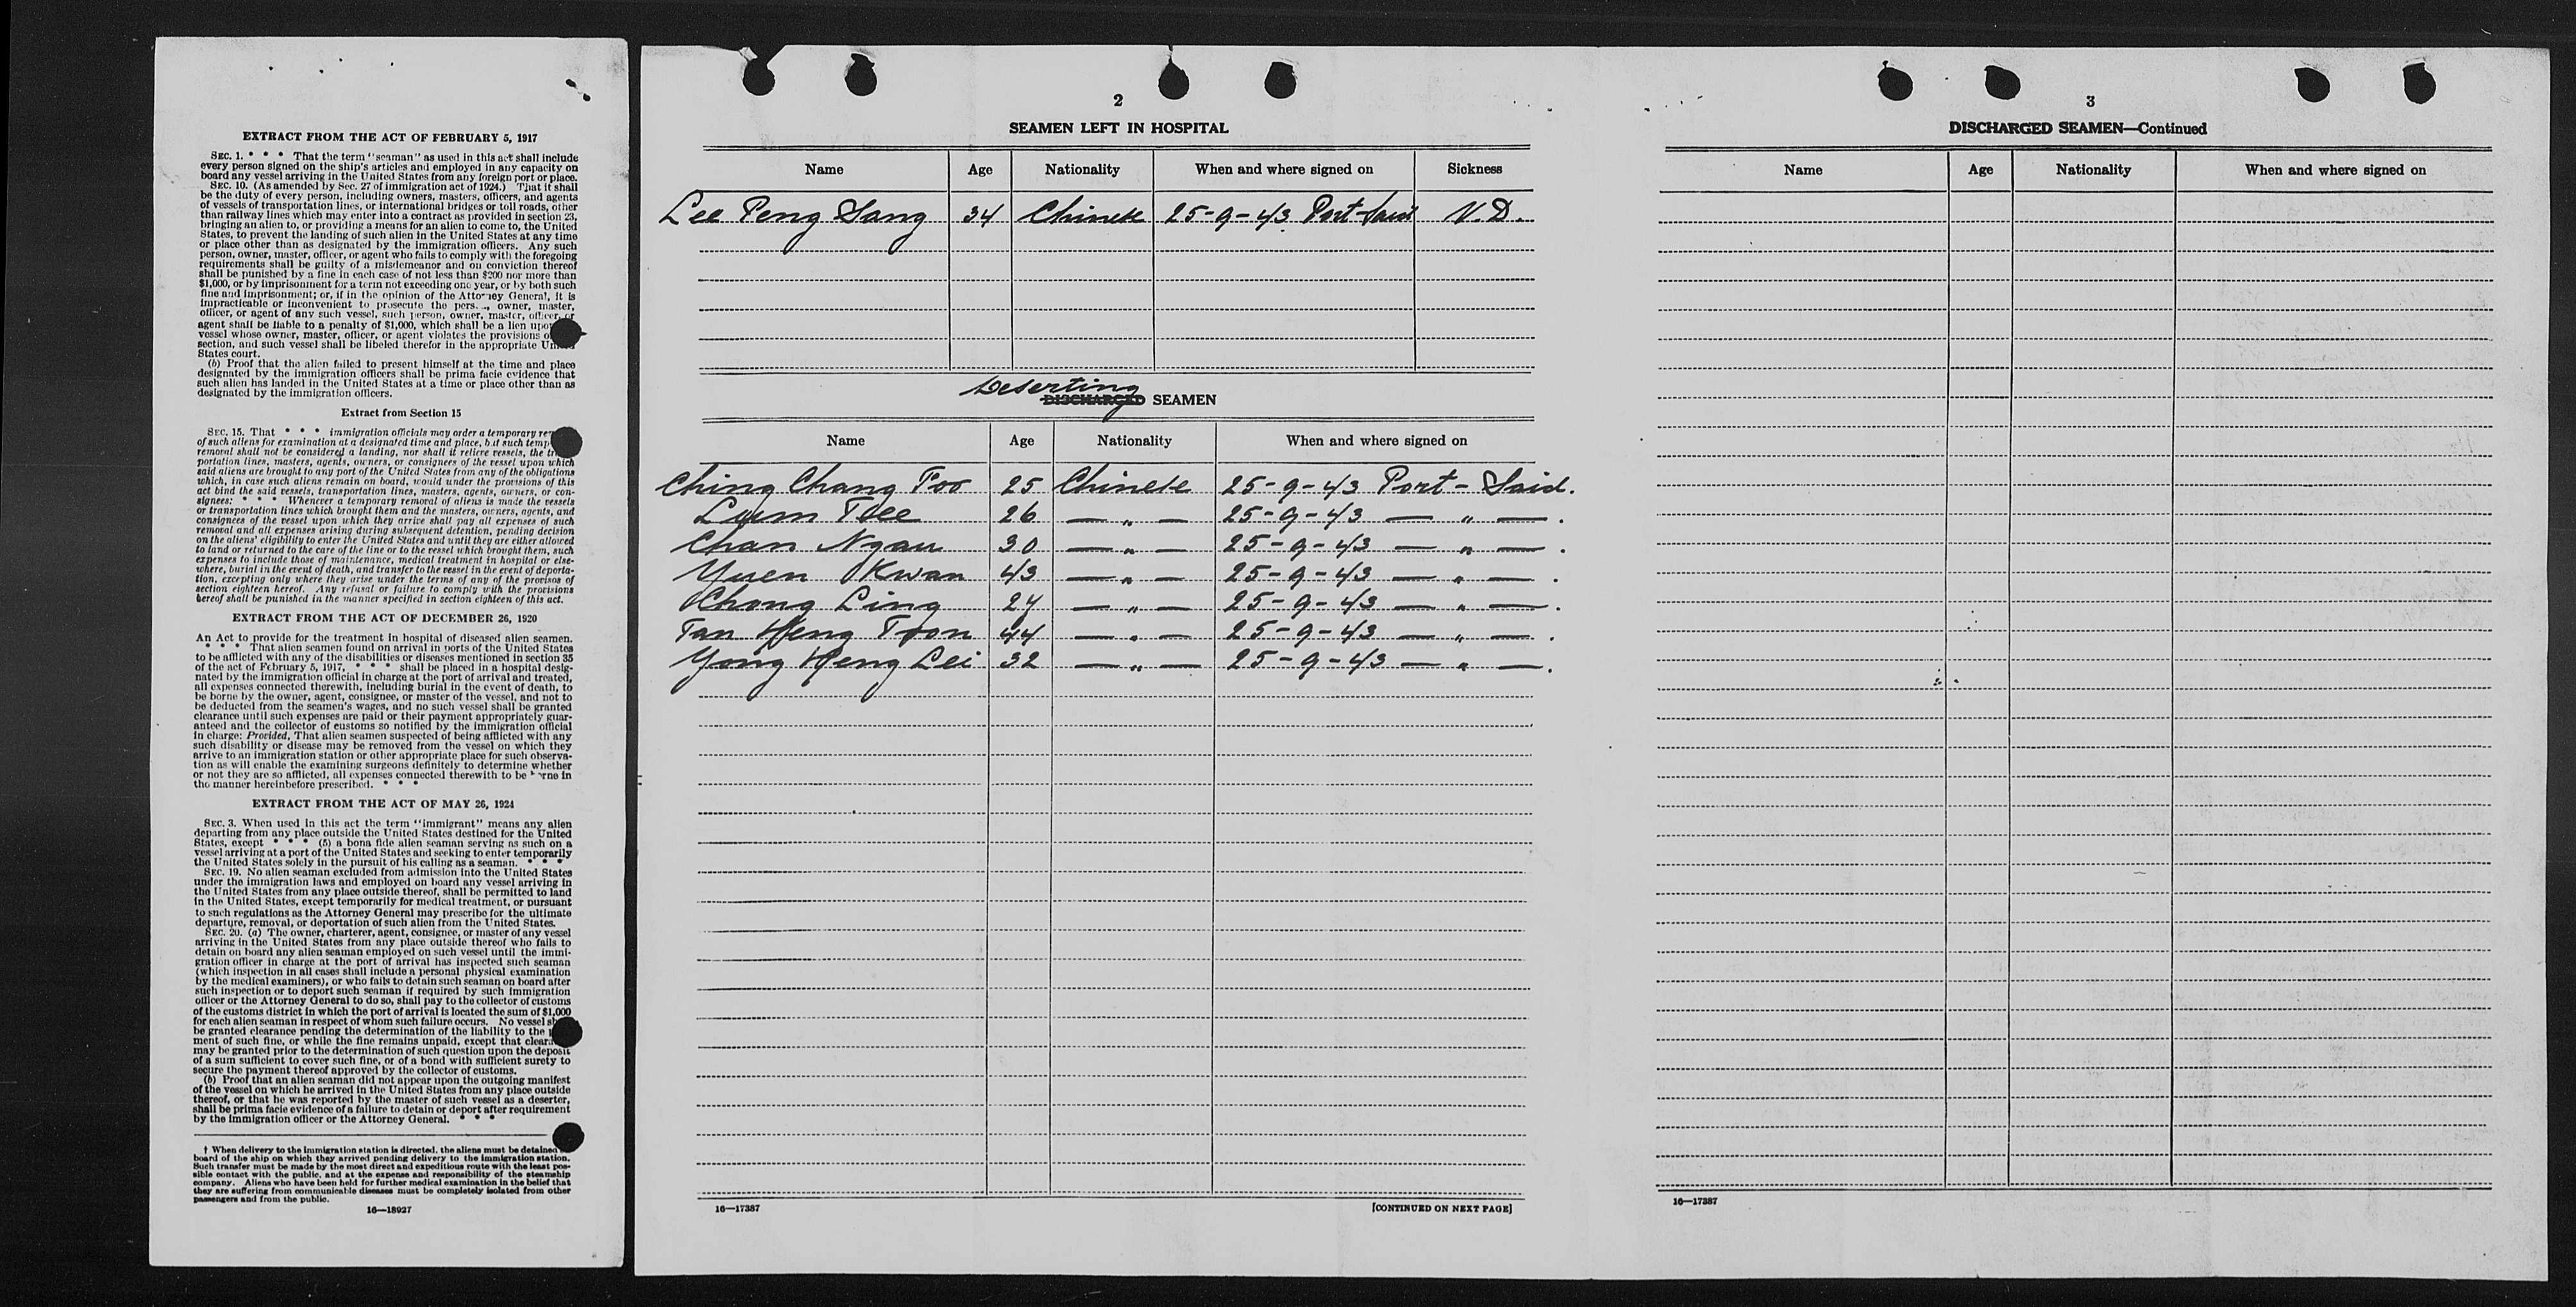 EXTRACT FROM THE ACT OF FEBRUARY 5, 1917
SEC. 1. * * * That the term "seaman" as used in this act shall include
every person signed on the ship's articles and employed in any capacity on
board any vessel arriving in the United States from any foreign port or place.
SEC. 10. (As amended by Sec. 27 of immigration act of 1924.) That it shall
be the duty of every person, including owners, masters, officers, and agents
of vessels of transportation lines, or international bridges or toll roads, other
than railway lines which may enter into a contract as provided in section 23,
bringing an alien to, or providing a means for an alien to come to, the United
States, to prevent the landing of such alien in the United States at any time
or place other than as designated by the immigration officers. Any such
person, owner, master, officer, or agent who fails to comply with the foregoing
requirements shall be guilty of a misdemeanor and on conviction thereof
shall be punished by a fine in each case of not less than $200 nor more than
$1,000, or by imprisonment for a term not exceeding one year, or by both such
fine and imprisonment; or, if in the opinion of the Attorney General, it is
impracticable or inconvenient to prosecute the pers.., owner, master,
officer, or agent of any such vessel, such person, owner, master, officer, or
agent shall be liable to a penalty of $1,000, which shall be a lien upo
vessel whose owner, master, officer, or agent violates the provisions o
section, and such vessel shall be libeled therefor in the appropriate Un
States court.
(b) Proof that the alien failed to present himself at the time and place
designated by the immigration officers shall be prima facie evidence that
such alien has landed in the United States at a time or place other than as
designated by the immigration officers.
Extract from Section 15
SEC. 15. That * * * immigration officials may order a temporary re
of such aliens for examination at a designated time and place, but such temp
removal shall not be considered a landing, nor shall it relieve vessels, the tr
portation lines, masters, agents, owners, or consignees of the vessel upon which
said aliens are brought to any port of the United States from any of the obligations
which, in case such aliens remain on board, would under the provisions of this
act bind the said vessels, transportation lines, masters, agents, owners, or con-
signees: * * * Whenever a temporary removal of aliens is made the vessels
or transportation lines which brought them and the masters, owners, agents, and
consignees of the vessel upon which they arrive shall pay all expenses of such
removal and all expenses arising during subsequent detention, pending decision
on the aliens' eligibility to enter the United States and until they are either allowed
to land or returned to the care of the line or to the vessel which brought them, such
expenses to include those of maintenance, medical treatment in hospital or else-
where, burial in the event of death, and transfer to the vessel in the event of deporta-
tion, excepting only where they arise under the terms of any of the provisos of
section eighteen hereof. Any refusal or failure to comply with the provisions
hereof shall be punished in the manner specified in section eighteen of this act.
EXTRACT FROM THE ACT OF DECEMBER 26, 1920
An Act to provide for the treatment in hospital of diseased alien seamen.
* * * That alien seamen found on arrival in ports of the United States
to be afflicted with any of the disabilities or diseases mentioned in section 35
of the act of February 5, 1917, * * * shall be placed in a hospital desig-
nated by the immigration official in charge at the port of arrival and treated,
all expenses connected therewith, including burial in the event of death, to
be borne by the owner, agent, consignee, or master of the vessel, and not to
be deducted from the seamen's wages, and no such vessel shall be granted
clearance until such expenses are paid or their payment appropriately guar-
anteed and the collector of customs so notified by the immigration official
in charge: Provided, That alien seamen suspected of being afflicted with any
such disability or disease may be removed from the vessel on which they
arrive to an immigration station or other appropriate place for such observa-
tion as will enable the examining surgeons definitely to determine whether
or not they are so afflicted, all expenses connected therewith to be rne in
the manner hereinbefore prescribed. * * *
EXTRACT FROM THE ACT OF MAY 26, 1924
SEC. 3. When used in this act the term "immigrant" means any alien
departing from any place outside the United States destined for the United
States, except * * * (5) a bona fide alien seaman serving as such on a
vessel arriving at a port of the United States and seeking to enter temporarily
the United States solely in the pursuit of his calling as a seaman. * * *
SEC. 19. No alien seaman excluded from admission into the United States
under the immigration laws and employed on board any vessel arriving in
the United States from any place outside thereof, shall be permitted to land
in the United States, except temporarily for medical treatment, or pursuant
to such regulations as the Attorney General may prescribe for the ultimate
departure, removal, or deportation of such alien from the United States.
SEC. 20. (a) The owner, charterer, agent, consignee, or master of any vessel
arriving in the United States from any place outside thereof who fails to
detain on board any alien seaman employed on such vessel until the immi-
gration officer in charge at the port of arrival has inspected such seaman
(which inspection in all cases shall include a personal physical examination
by the medical examiners), or who fails to detain such seaman on board after
such inspection or to deport such seaman if required by such immigration
officer or the Attorney General to do so, shall pay to the collector of customs
of the customs district in which the port of arrival is located the sum of $1,000
for each alien seaman in respect of whom such failure occurs. No vessel sh
be granted clearance pending the determination of the liability to the
ment of such fine, or while the fine remains unpaid, except that clear
may be granted prior to the determination of such question upon the deposit
of a sum sufficient to cover such fine, or of a bond with sufficient surety to
secure the payment thereof approved by the collector of customs.
(b) Proof that an alien seaman did not appear upon the outgoing manifest
of the vessel on which he arrived in the United States from any place outside
thereof, or that he was reported by the master of such vessel as a deserter,
shall be prima facie evidence of a failure to detain or deport after requirement
by the immigration officer or the Attorney General. * * *
† When delivery to the immigration station is directed, the aliens must be detained
board of the ship on which they arrived pending delivery to the immigration station.
Such transfer must be made by the most direct and expeditious route with the least pos-
sible contact with the public, and at the expense and responsibility of the steamship
company. Aliens who have been held for further medical examination in the belief that
they are suffering from communicable diseases must be completely isolated from other
passengers and from the public.
16—18927
2
SEAMEN LEFT IN HOSPITAL
Name Age Nationality When and where signed on Sickness
Lee Peng Sang 34 Chinese 25-9-43 Port-Said V.D.
Deserting
DISCHARGED SEAMEN
Name Age Nationality When and where signed on
Ching Chang Foo 25 Chinese 25-9-43 Port-Said.
Lum Tee 26 — " — 25-9-43 — " —.
Chan Ngau 30 — " — 25-9-43 — " —.
Yuen Kwan 43 — " — 25-9-43 — " —.
Chong Ling 24 — " — 25-9-43 — " —.
Tan Heng Toon 44 — " — 25-9-43 — " —.
Yong Heng Lei 32 — " — 25-9-43 — " —.
16—17387 [CONTINUED ON NEXT PAGE]
3
DISCHARGED SEAMEN—Continued
Name Age Nationality When and where signed on
16—17387